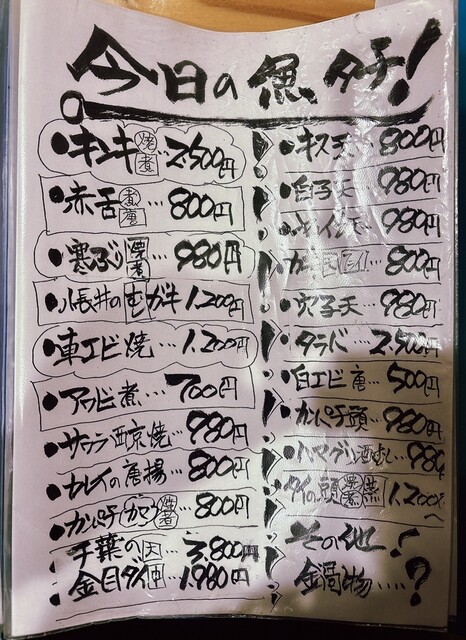 今日の魚タチ!
・キンキ 焼 煮 … 2,500円
・赤舌 煮 唐 … 800円
・寒ぶり 塩 煮 … 980円
・小長井のむしガキ 1,200円
・車エビ焼 … 1,200円
・アワビ煮 … 700円
・サワラ西京焼 … 980円
・カレイの唐揚 … 800円
・カンパチカマ 塩 煮 … 800円
千葉の 大 … 3,800円
金目タイ 中 … 1,980円
・キス天 … 800円
・白子天 … 980円
980円
800円
・穴子天 … 980円
・タラバ … 2,500円
・白エビ唐 … 500円
・カンパチ頭 … 980円
・ハマグリ酒むし … 980
・タイの頭 塩 煮 蒸 … 1,200
その他!
金貴物 ……?